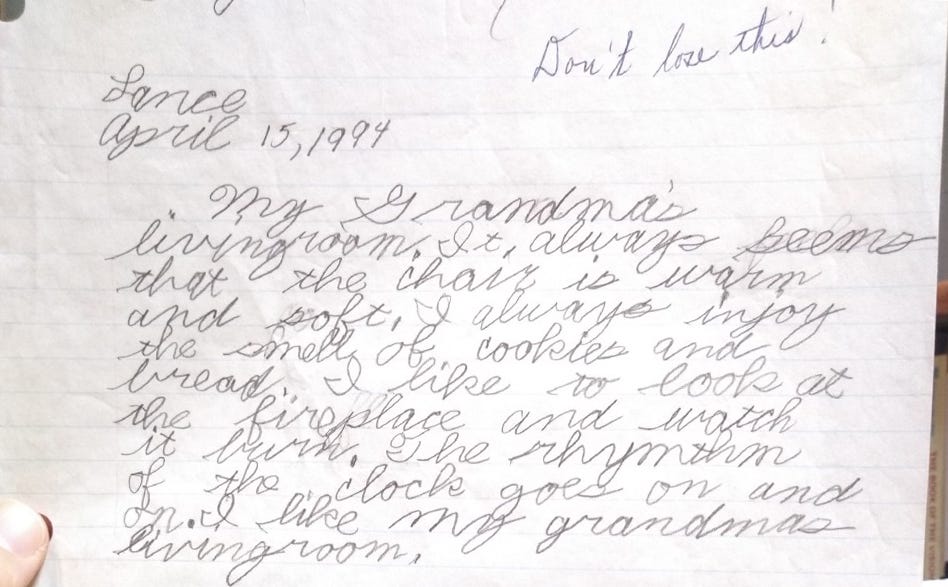 Don't lose this!
Lance
April 15, 1994
My Grandma's
livingroom. It, always seems
that the chair is warm
and soft. I always injoy
the smell of cookies and
bread. I like to look at
the fireplace and watch
it burn. The rhymthm
of the clock goes on and
on. I like my grandmas
livingroom.